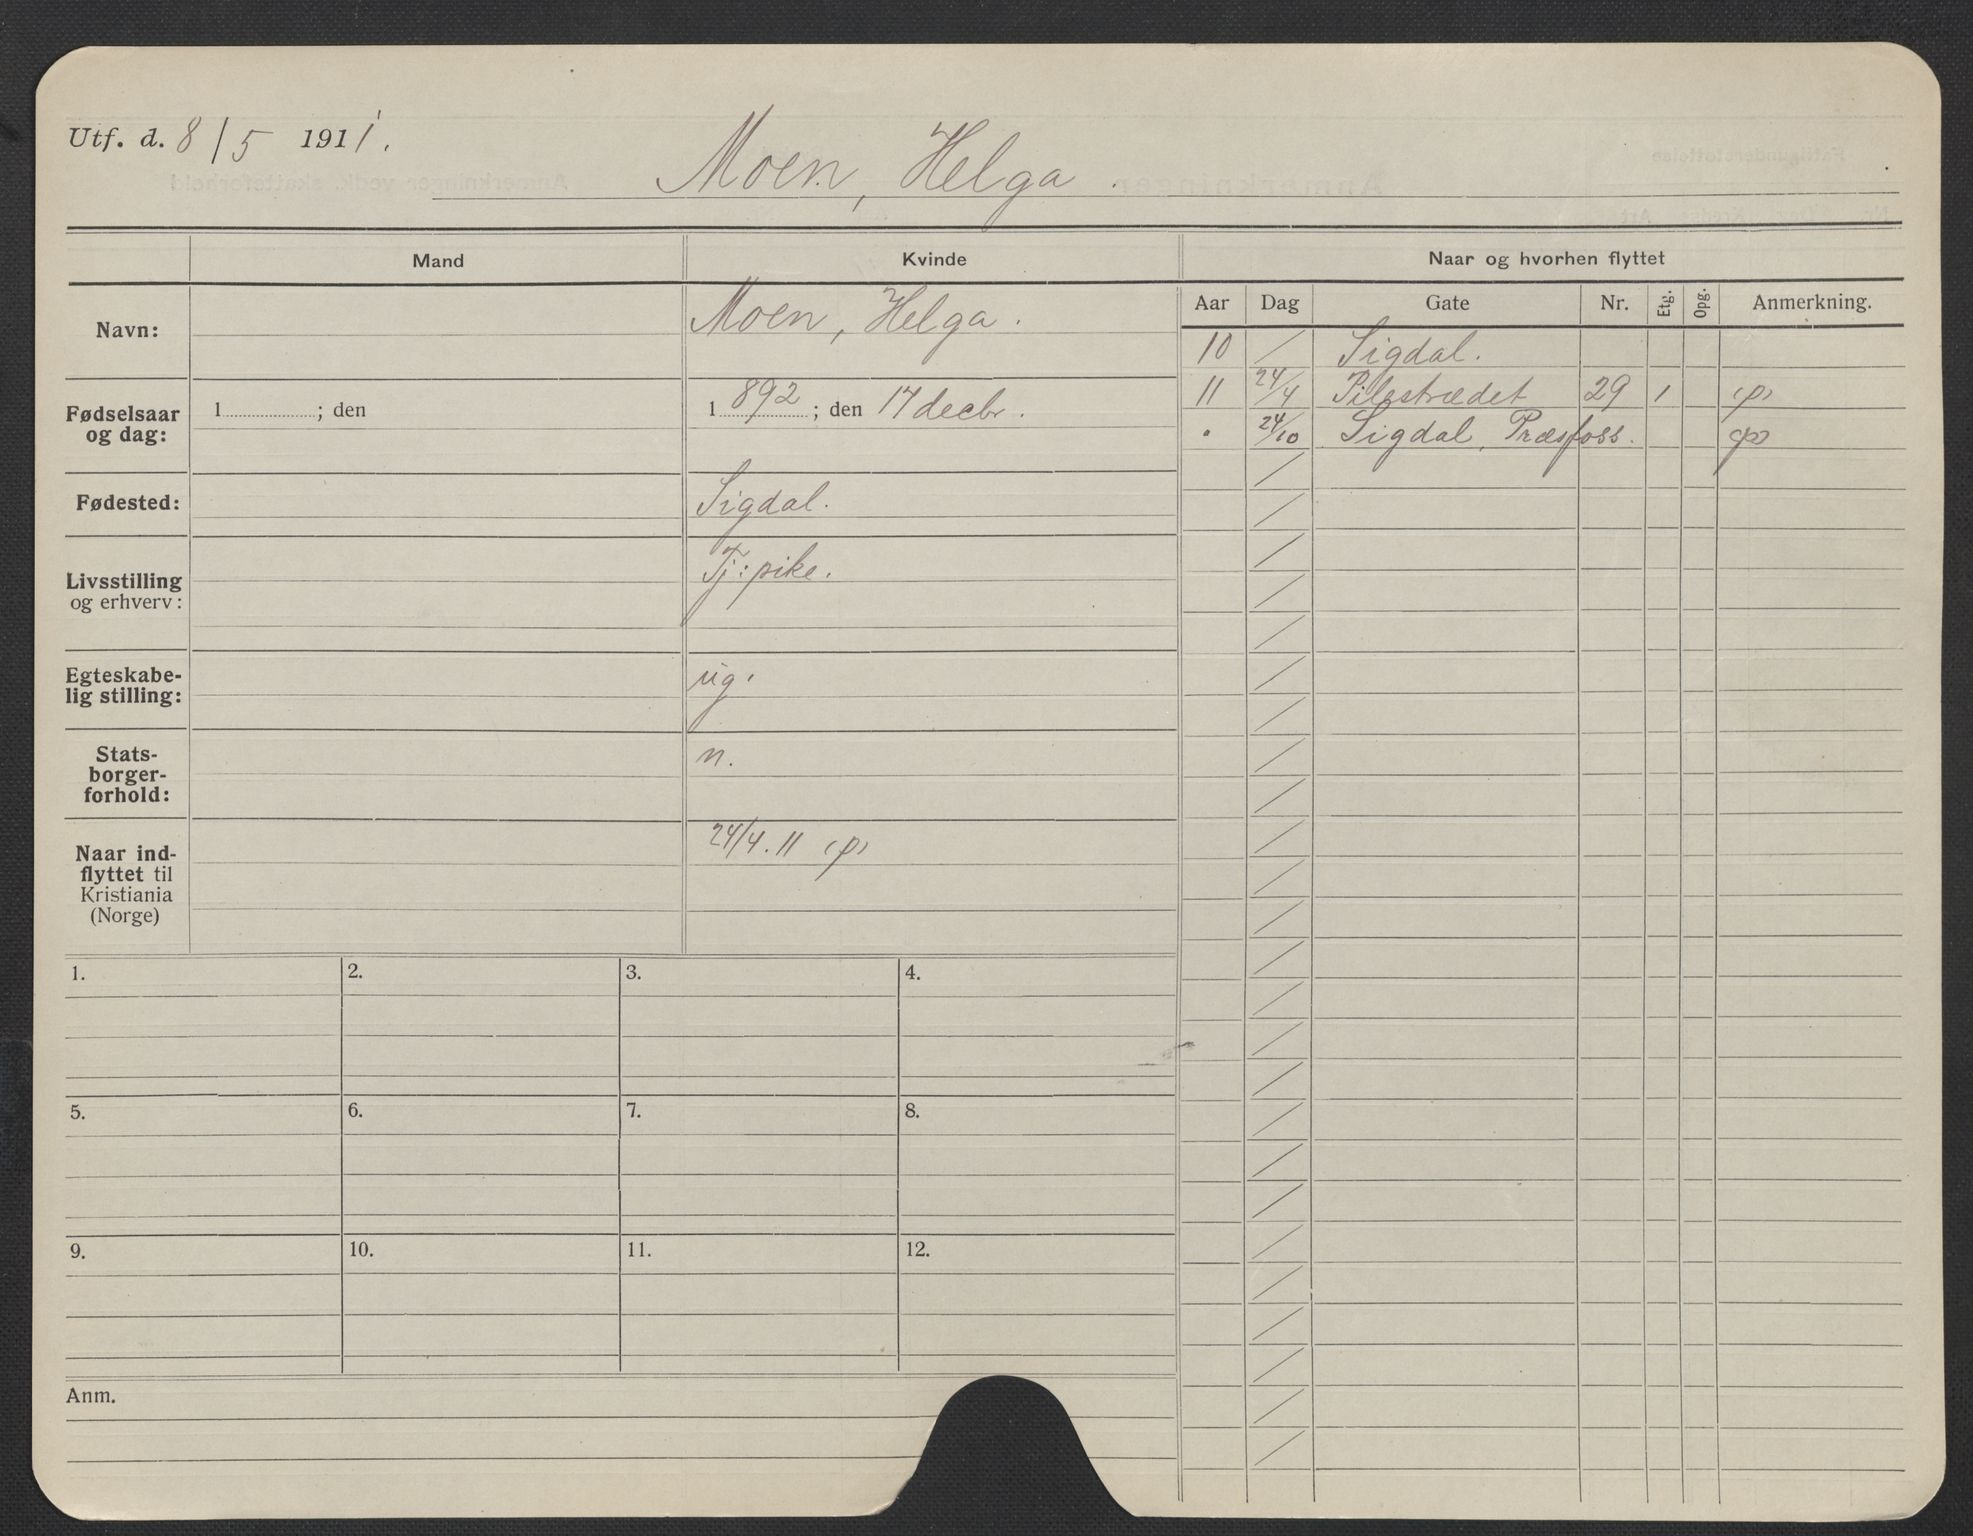 Utf. d. 8/5 1911.
Moen, Helga.
Mand
Kvinde
Naar og hvorhen flyttet
Navn:
Moen, Helga.
Fødselsaar og dag:
1 ; den
1892; den 17 decbr.
Fødested:
Sigdal.
Livsstilling og erhverv:
Tj: pike.
Egteskabe-
lig stilling:
ug.
Stats-
borger-
forhold:
n.
Naar ind-
flyttet til
Kristiania
(Norge)
24/4. 11 (p)
Aar Dag Gate Nr. Etg. Opg. Anmerkning.
10 / Sigdal.
11 24/4 Pilestrædet 29 1 (p)
" 24/10 Sigdal, Præsfoss.
1. 2. 3. 4.
5. 6. 7. 8.
9. 10. 11. 12.
Anm.